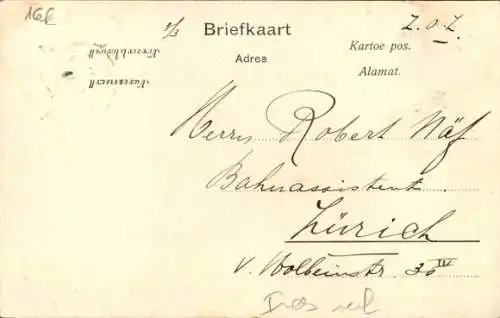 16k
Briefkaart
Z.O.Z.
Adres
Kartoe pos.
Alamat.
Herrn Robert Näf
Bahnassistent
Zürich
V. Holbeinstr. 30 IV